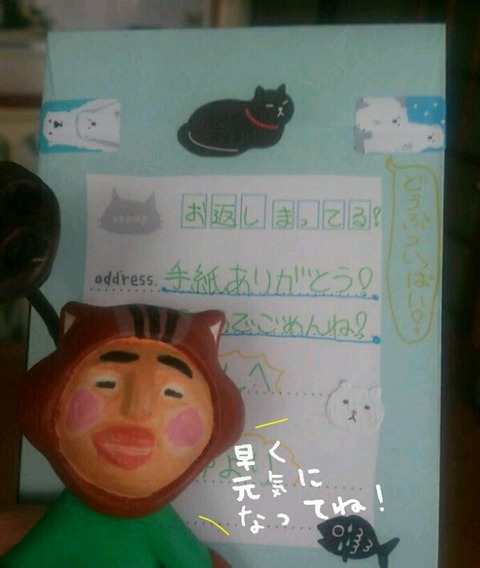 お返しまってる?
どうぶついっぱい!
address. 手紙ありがとう!
でごめんね?
へ
早く
元気に
なってね!